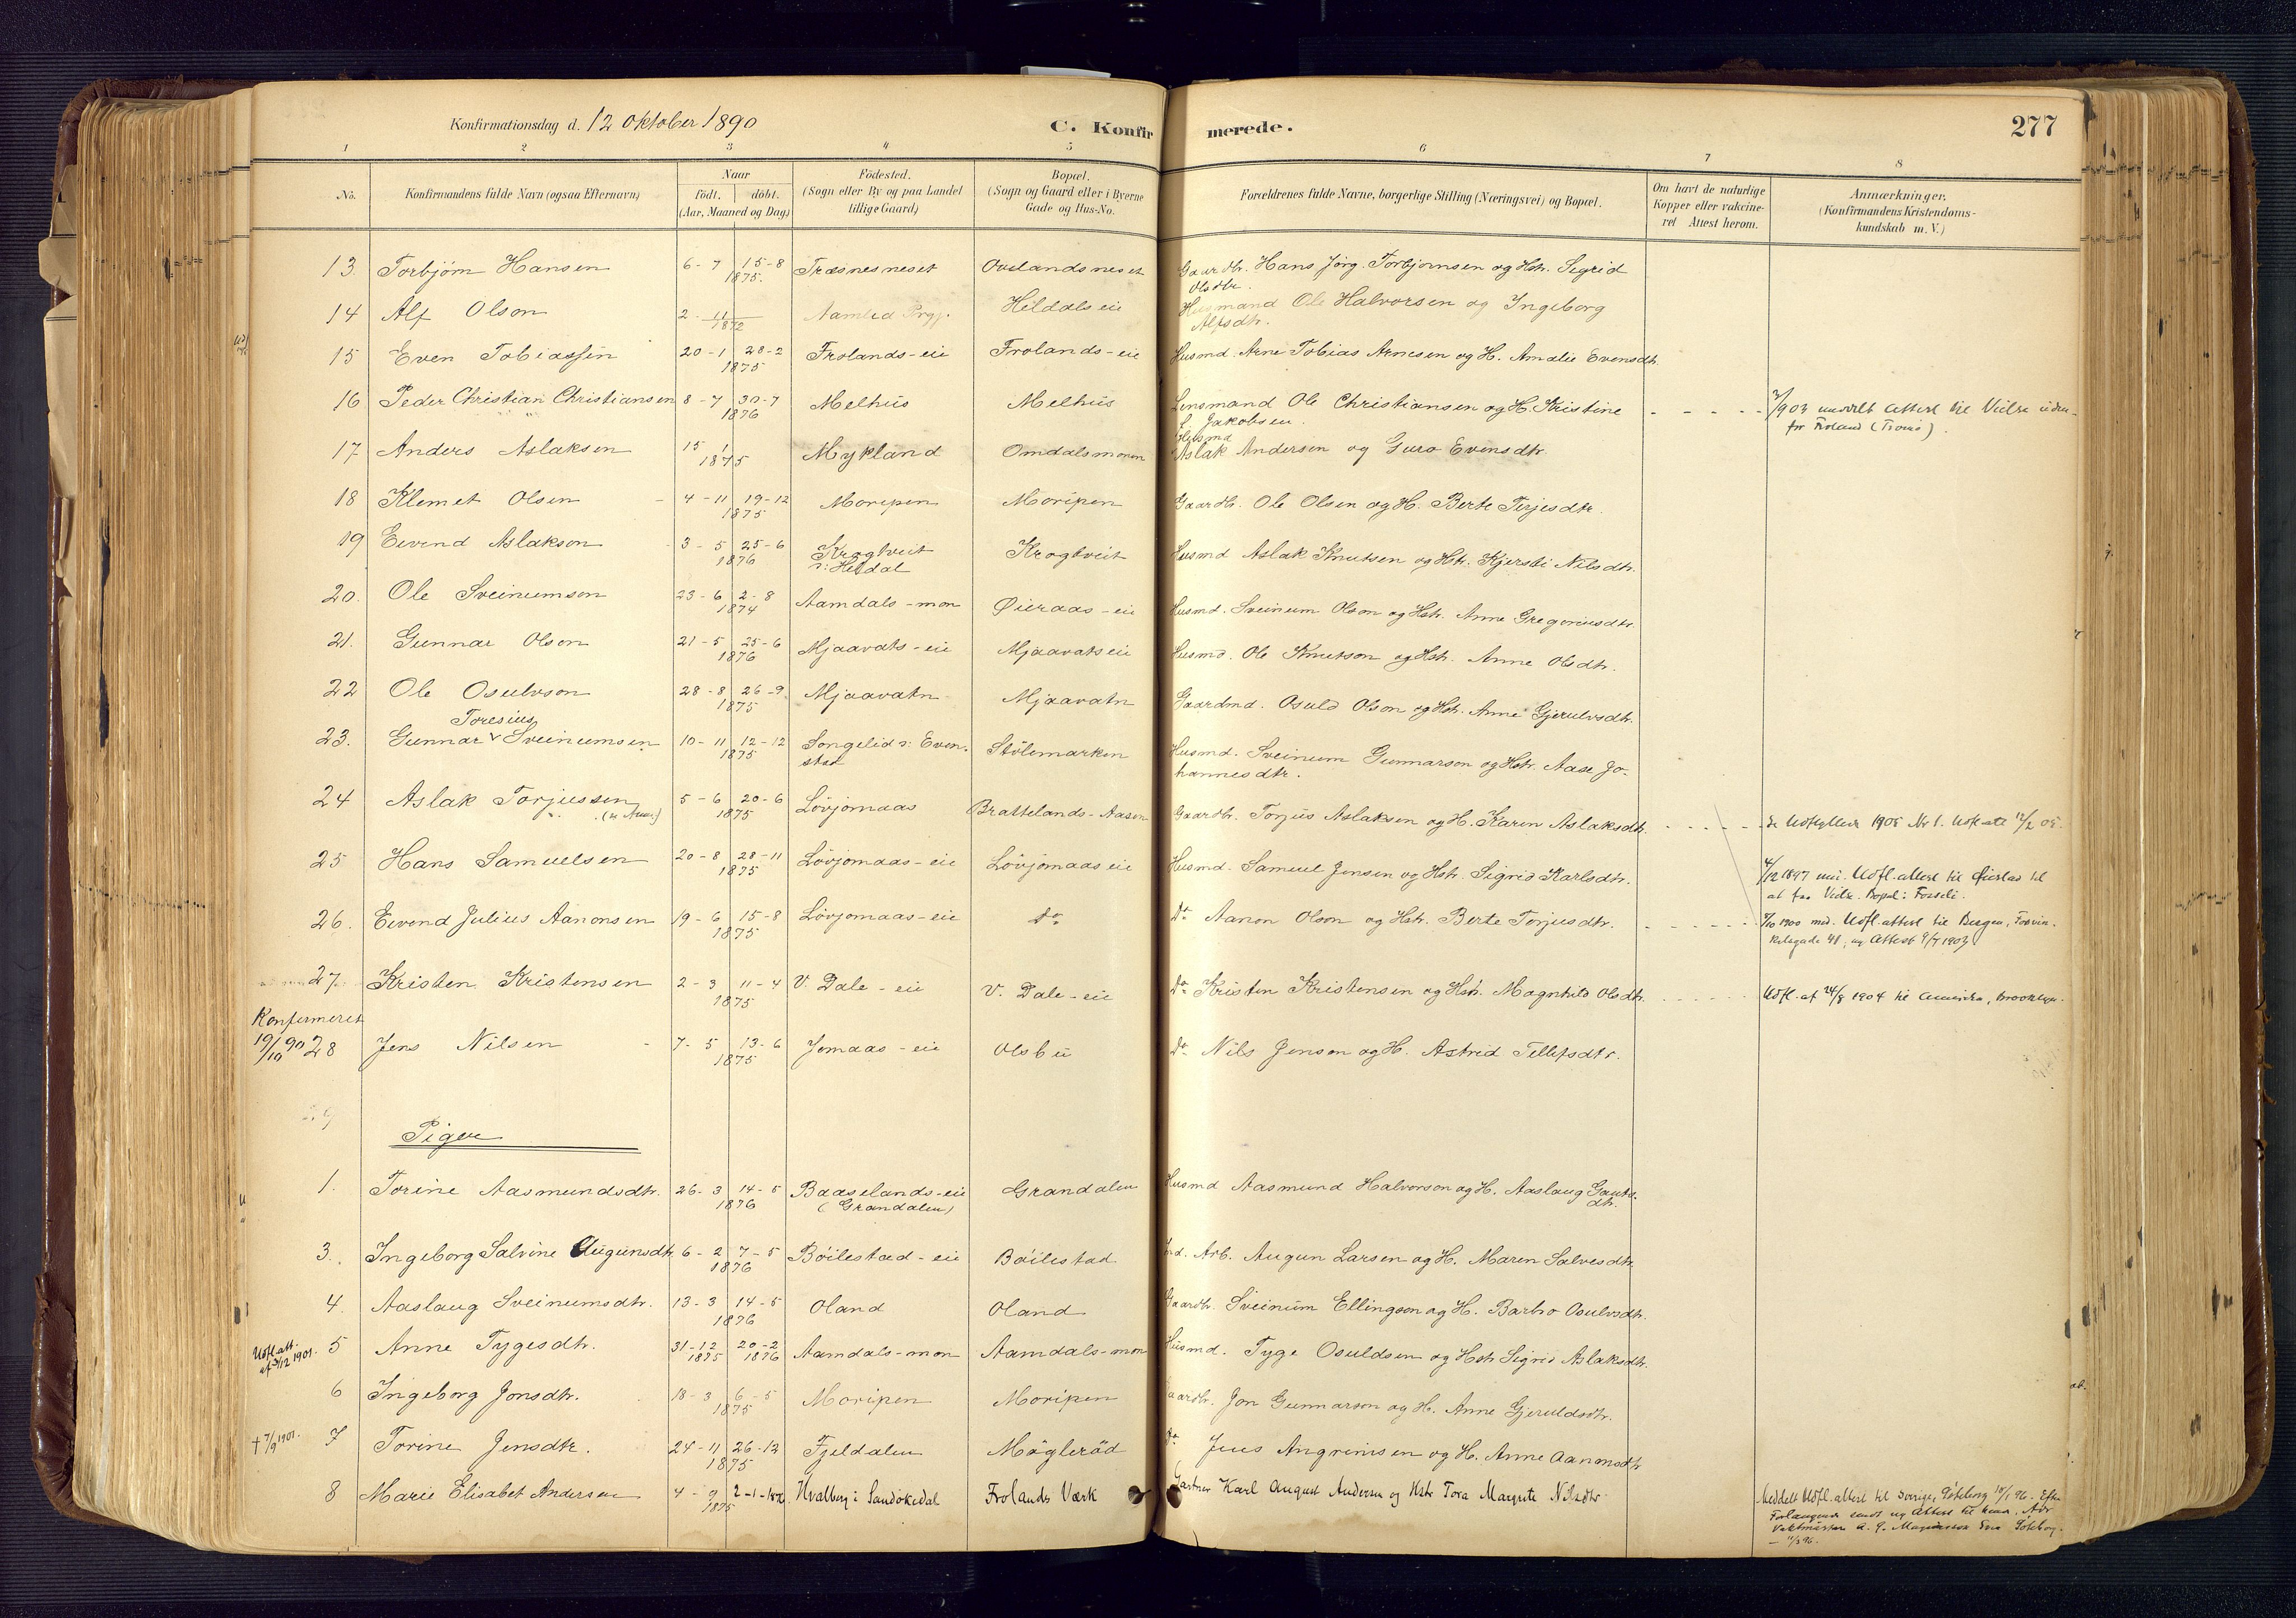 Konfirmationsdag d. 12 Oktober 1890
C. Konfirmerede.
277
1 2 3 4 5 6 7 8
No.
Konfirmandens fulde Navn (ogsaa Efternavn)
Naar
födt. döbt.
(Aar, Maaned og Dag)
Födested.
(Sogn eller By og paa Landet
tillige Gaard)
Bopæl.
(Sogn og Gaard eller i Byerne
Gade og Hus-No.
Forældrenes fulde Navne, borgerlige Stilling (Næringsvei) og Bopæl.
Om havt de naturlige
Kopper eller vakcine-
ret Attest herom.
Anmærkninger.
(Konfirmandens Kristendoms-
kundskab m. V.)
13 Torbjørn Hansen 6-7 15-8 1875. Træsnesneset Ovelandsneset Gaardbr. Hans Jørg. Torbjørnsen og Hstr. Sigrid
Olsdtr.
14 Alf Olson 2-11 1872 Aamlid Prgj. Hildals eie Husmand Ole Halvorsen og Ingeborg
Alfsdtr.
15 Even Tobiassen 20-1 28-2 1875 Frolands-eie Frolands-eie Husmd. Arne Tobias Arnesen og H. Amalie Evensdtr.
16 Peder Christian Christiansen 8-7 30-7 1876 Melhus Melhus Lensmand Ole Christiansen og H. Kristine
f. Jakobsen. /903 meddelt Attest til Vielse
for Froland
17 Anders Aslaksen 15 1 1875 Mykland Omdalsmonen Husmd
Aslak Andersen og Guro Evensdtr.
18 Klemet Olsen 4-11 19-12 1875 Moripen Moripen Gaardb. Ole Olsen og H. Berte Terjesdtr.
19 Eivend Aslakson 3-5 25-6 1876 Krogtveit
i Heldal Krogtveit Husmd Aslak Knutsen og Hstr. Kjersti Nilsdtr.
20. Ole Sveinumson 23-6 2-8 1874 Aamdals-mon Øieraas-eie Husmd. Sveinum Olson og Hstr. Anne Gregoriusdtr.
21. Gunnar Olson 21-5 25-6 1876 Mjaavats-eie Mjaavatseie Husmd. Ole Knutson og Hstr. Anne Olsdtr.
22 Ole Osulvson 28-8 26-9 1875 Mjaavatn Mjaavatn Gaardmd. Osuld Olson og Hstr. Anne Gjerulvsdtr.
Toresius
23. Gunnar Sveinumsen 10-11 12-12 1875 Songelid i Even-
stad Stölemarken Husmd. Sveinum Gunnarson og Hstr. Aase Jo-
hannesdtr.
24 Aslak Torjussen 5-6 20-6 1875 Lövjomaas Brattelands-Aasen Gaardb. Torjus Aslaksen og H. Karen Aslaksdtr. Se Udflyttede 1905 Nr 1. Udfl.att 12/2 05.
25 Hans Samuelsen 20-8 28-11 1875 Lövjomaas-eie Lövjomaas eie Husmd. Samuel Jensen og Hstr. Sigrid Karlsdtr. 4/12 1897 Udfl.attest til Øiestad til
at faa Vielse. Bopæl: Fosseli.
26. Eivend Julius Aanonsen 19-6 15-8 1875 Lövjomaas-eie do Do Aanon Olson og Hstr. Berte Torjusdtr. /10 1900 med. Udfl.attest til Bergen,
41, ny Attest 9/7 1903
27. Kristen Kristensen 2-3 11-4 1875 V. Dale-eie V. Dale-eie Do Kristen Kristensen og Hstr. Magnhild Olsdtr. Udfl.at 24/8 1904 til Amerika, Brooklyn.
Konfirmeret
19/10 90 28 Jens Nilsen 7-5 13-6 1875 Jomaas-eie Olsbu Do Nils Jenson og H. Astrid Tellefsdtr.
29
Piger
1. Torine Aasmundsdtr. 26-3 14-5 1876 Baaselands-eie
(Grandalen) Grandalen Husmd Aasmund Halvorson og H. Aaslaug Gautes-
dtr.
3. Ingeborg Salvine Augunsdtr 6-2 7-5 1876 Böilestad-eie Böilestad Ind. Arb. Augun Larsen og H. Maren Salvesdtr.
4. Aaslaug Sveinumsdtr. 13-3 14-5 1876 Oland Oland Gaardbr. Sveinum Ellingson og H. Barbro Osulvsdtr.
Udfl.att.
af /12 1901. 5 Anne Tygesdtr. 31-12 1875 20-2 1876 Aamdals-mon Aamdals-mon Husmd. Tyge Osuldsen og Hstr Sigrid Aslaksdtr.
6 Ingeborg Jonsdtr. 18-3 6-5 1875 Moripen Moripen Gaardbr. Jon Gunnarson og H. Anne Gjeruldsdtr.
† 7/9 1901. 7 Torine Jensdtr. 24-11 26-12 1875 Fjeldalen Möglerød Do Jens Angrimsen og H. Anne Aanonsdtr
8 Marie Elisabet Andersen 4-9 1875 2-1-1876 Hvalberg i Sandökedal Frolands Værk Gartner Karl August Andersen og Hstr Tora Margrete Nilsdtr. Meddelt Udfl.attest til Sverige, Göteborg 10/1 96. Efter
Forlangende sendt ny Attest til hende. Adr.
Vaktmästare A. P. Magnusson Göteborg.
– 11/3 96.